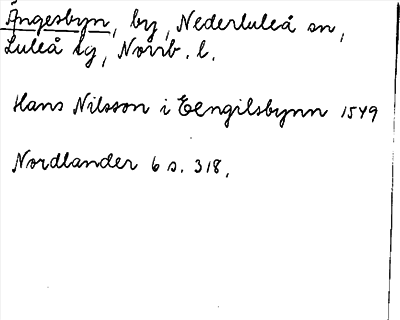 Ängesbyn, by, Nederluleå sn,
Luleå tg, Norrb. l.
Hans Nilsson i Eengilsbynn 1549
Nordlander 6 s. 318.